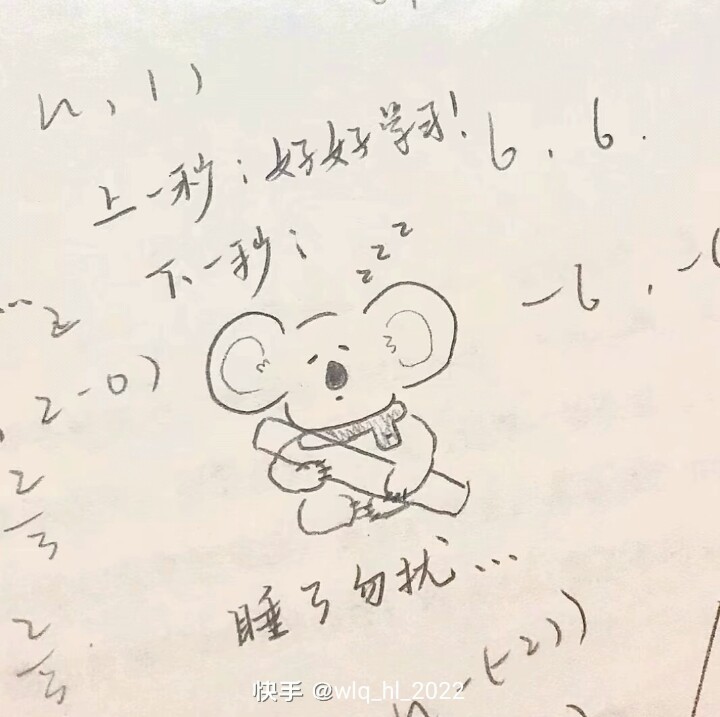 n,1,
上一秒:好好学习!
6,6.
下一秒:
zzz
-6,-6
...2
,2-0)
2
三
2
三
睡了勿扰...
n-(-2))
快手 @wlq_hl_2022